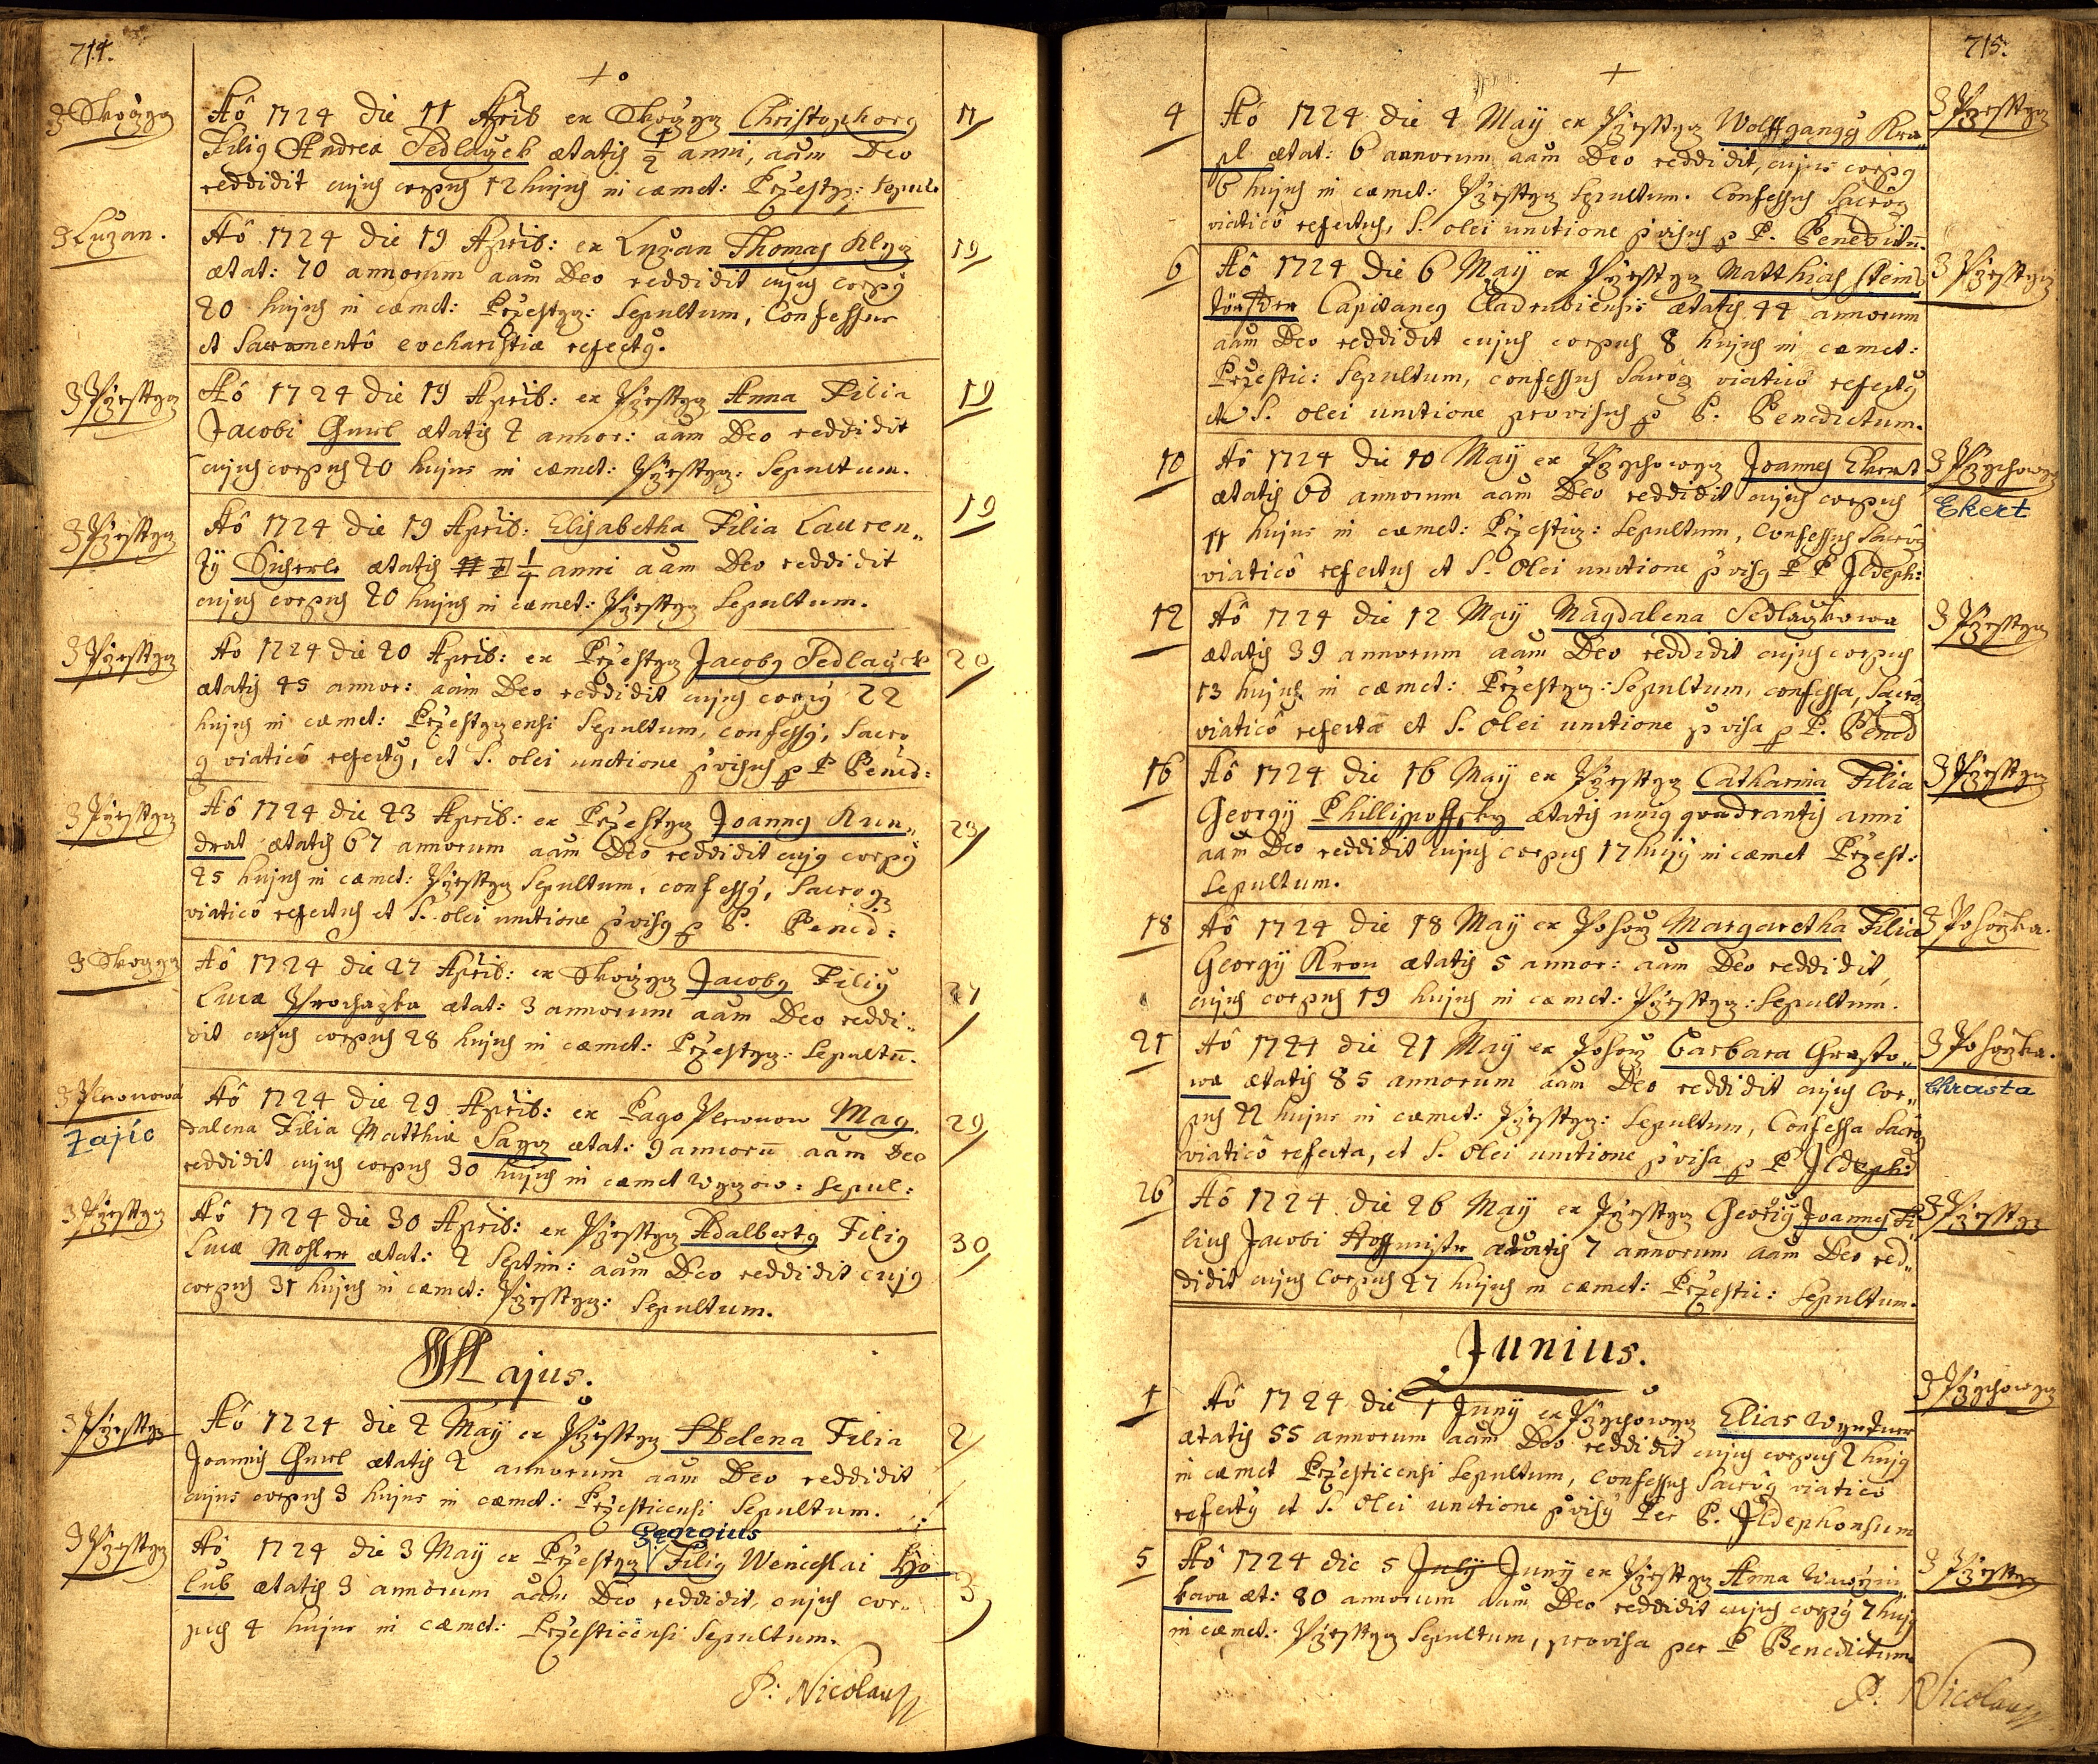 714.
3 Skoczyz
Aô 1724 die 11 Aprib ex Skoczyz Christophorg
Filig Andreæ Sedlaczek ætatis 1/2 anni, aãm Deo
reddidit cujus corpus 12 hujus in cæmet: Przestyz: sepul.
11
3 Luzan.
Aô 1724 die 19 Aprib: ex Luzan Thomas Klyz
ætat: 70 annorum aãm Deo reddidit cujus corpg
20 hujus in cæmet: Przestyz: Sepultum, Confessus
et Sacramentô eucharistiæ refectg.
19
3 Przesstyz
Aô 1724 die 19 Aprib: ex Przesstyz Anna Filia
Jacobi Gmel ætatis 2 annor: aãm Deo reddidit
cujus corpus 20 hujus in cæmet: Przesstyz: Sepultum.
19
3 Przesstyz
Aô 1724 die 19 Aprib: Elisabetha Filia Lauren„
tÿ Sicherle ætatis 1/4 anni aãm Deo reddidit
cujus corpus 20 hujus in cæmet: Przesstyz Sepultum.
19
3 Przesstyz
Aô 1724 die 20 Aprib: ex Przestyz Jacobg Sedlayck
ætatis 45 annor: aãm Deo reddidit cujus corpg 22
hujus in cæmet: Przestyzensi Sepultum, confessg, Sacro
g viaticô refectg, et S. olei unctione p̃visus p P Bened:
20
3 Przesstyz
Aô 1724 die 23 Aprib: ex Przestyz Joannes Kun„
drat ætatis 67 annorum aãm Deo reddidit cujg corpg
25 hujus in cæmet: Przesstyz Sepultum, confessg, Sacrog
viaticô refectus et S. olei unctione p̃visg p P. Bened:
23
3 Skoczyz
Aô 1724 die 27 Aprib: ex Skoczyz Jacobg Filig
Lucæ Prochazka ætat: 3 annorum aãm Deo reddi„
dit cujus corpus 28 hujus in cæmet: Przestyz: Sepultũ.
27
Zajíc
Aô 1724 die 29 Aprib: ex Pago Plewnow Mag„
dalena Filia Matthiæ Sayz ætat: 9 annorũ aãm Deo
reddidit cujus corpus 30 hujus in cæmet Wyzow: sepul:
29
3 Przesstyz
Aô 1724 die 30 Aprib: ex Przesstyz Adalbertg Filig
Lucæ Mosler ætat: 2 Septim: aãm Deo reddidit cujg
corpus 31 hujus in cæmet: Przesstyz: Sepultum.
30
Majus.
3 Przesstyz
Aô 1724 die 2 Maÿ ex Przesstyz Helena Filia
Joannis Gmel ætatis 2 annorum aãm Deo reddidit
cujus corpus 3 hujus in cæmet: Przesticensi Sepultum.
2
3 Przesstyz
Georgius
Aô 1724 die 3 Maÿ ex Przestyz Filig Wenceslai Ho
lub ætatis 3 annorum aãm Deo reddidit, cujus cor„
pus 4 hujus in cæmet: Przesticensi Sepultum.
3
P: Nicolaus
715.
4
Aô 1724 die 4 Maÿ ex Przesstyz Wolffgangg Kra„
pl ætat: 6 annorum aãm Deo reddidit, cujus corpg
6 hujus in cæmet: Przesstyz Sepultum. Confessus Sacrôg
viaticô refectus, S. olei unctione p̃visus p P. Benedictũ.
3 Przesstyz
6
Aô 1724 die 6 Maÿ ex Przesstyz Matthias Stein
Capitaneg Cladrubiensis ætatis 44 annorum
aãm Deo reddidit cujus corpus 8 hujus in cæmet:
Przestic: Sepultum, confessus Sacrôg viaticô refectg
et S. olei unctione provisus p P. Benedictum.
3 Przesstyz
10
Aô 1724 die 10 Maÿ ex Pzychowyz Joannes Ekert
ætatis 60 annorum aãm Deo reddidit cujus corpus
11 hujus in cæmet: Przestiz: Sepultum, Confessus Sacrôg
viaticô refectus et S. Olei unctione p̃visg P P Ildeph:
3 Pzychowyz
Ekert
12
Aô 1724 die 12 Maÿ Magdalena Sedlaczkowa
ætatis 39 annorum aãm Deo reddidit cujus corpus
13 hujus in cæmet: Przestyz: Sepultum, confessa, Sacrô
viaticô refecta et S. Olei unctione p̃visa p P. Bened
3 Przesstyz
16
Aô 1724 die 16 Maÿ ex Przesstyz Catharina Filia
Georgÿ Phillippoffsky ætatis unig quadrantis anni
aãm Deo reddidit cujus corpus 17 hujg in cæmet Przest:
Sepultum.
3 Przesstyz
18
Aô 1724 die 18 Maÿ ex Pohorz Margaretha Filia
Georgÿ Kron ætatis 5 annor: aãm Deo reddidit,
cujus corpus 19 hujus in cæmet: Przesstyz: Sepultum.
3 Pohorzka.
21
Aô 1724 die 21 Maÿ ex Pohorz Barbara Chrasto„
wa ætatis 85 annorum aãm Deo reddidit cujus cor„
pus 22 hujus in cæmet: Przesstyz: Sepultum, Confessa Sacrôg
viaticô refecta, et S. Olei unctione p̃visa p P Ildeph:
3 Pohorzka.
Chrasta
26
Aô 1724 die 26 Maÿ ex Przesstyz Georig Joannes Fi
lius Jacobi Hoffmistr ætatis 7 annorum aãm Deo red„
didit cujus Corpus 27 hujus in cæmet: Przestic: Sepultum.
3 Przesstyz
Junius.
1
Aô 1724 die 1 Junÿ ex Pzychowyz Elias Wyntner
ætatis 55 annorum aãm Deo reddidit cujus corpus 2 hujg
in cæmet Przesticensi Sepultum, Confessus Sacrôg viaticô
refectg et S. Olei unctione p̃visg Per P. Ildephonsum
3 Pzychowyz
5
Aô 1724 die 5 July Junÿ ex Przesstyz Anna Wawrzin
kava æt: 80 annorum aãm Deo reddidit cujus corpg 7 hujg
in cæmet: Przesstyz Sepultum, provisa per P Benedictum
3 Przesstyz
P: Nicolaus